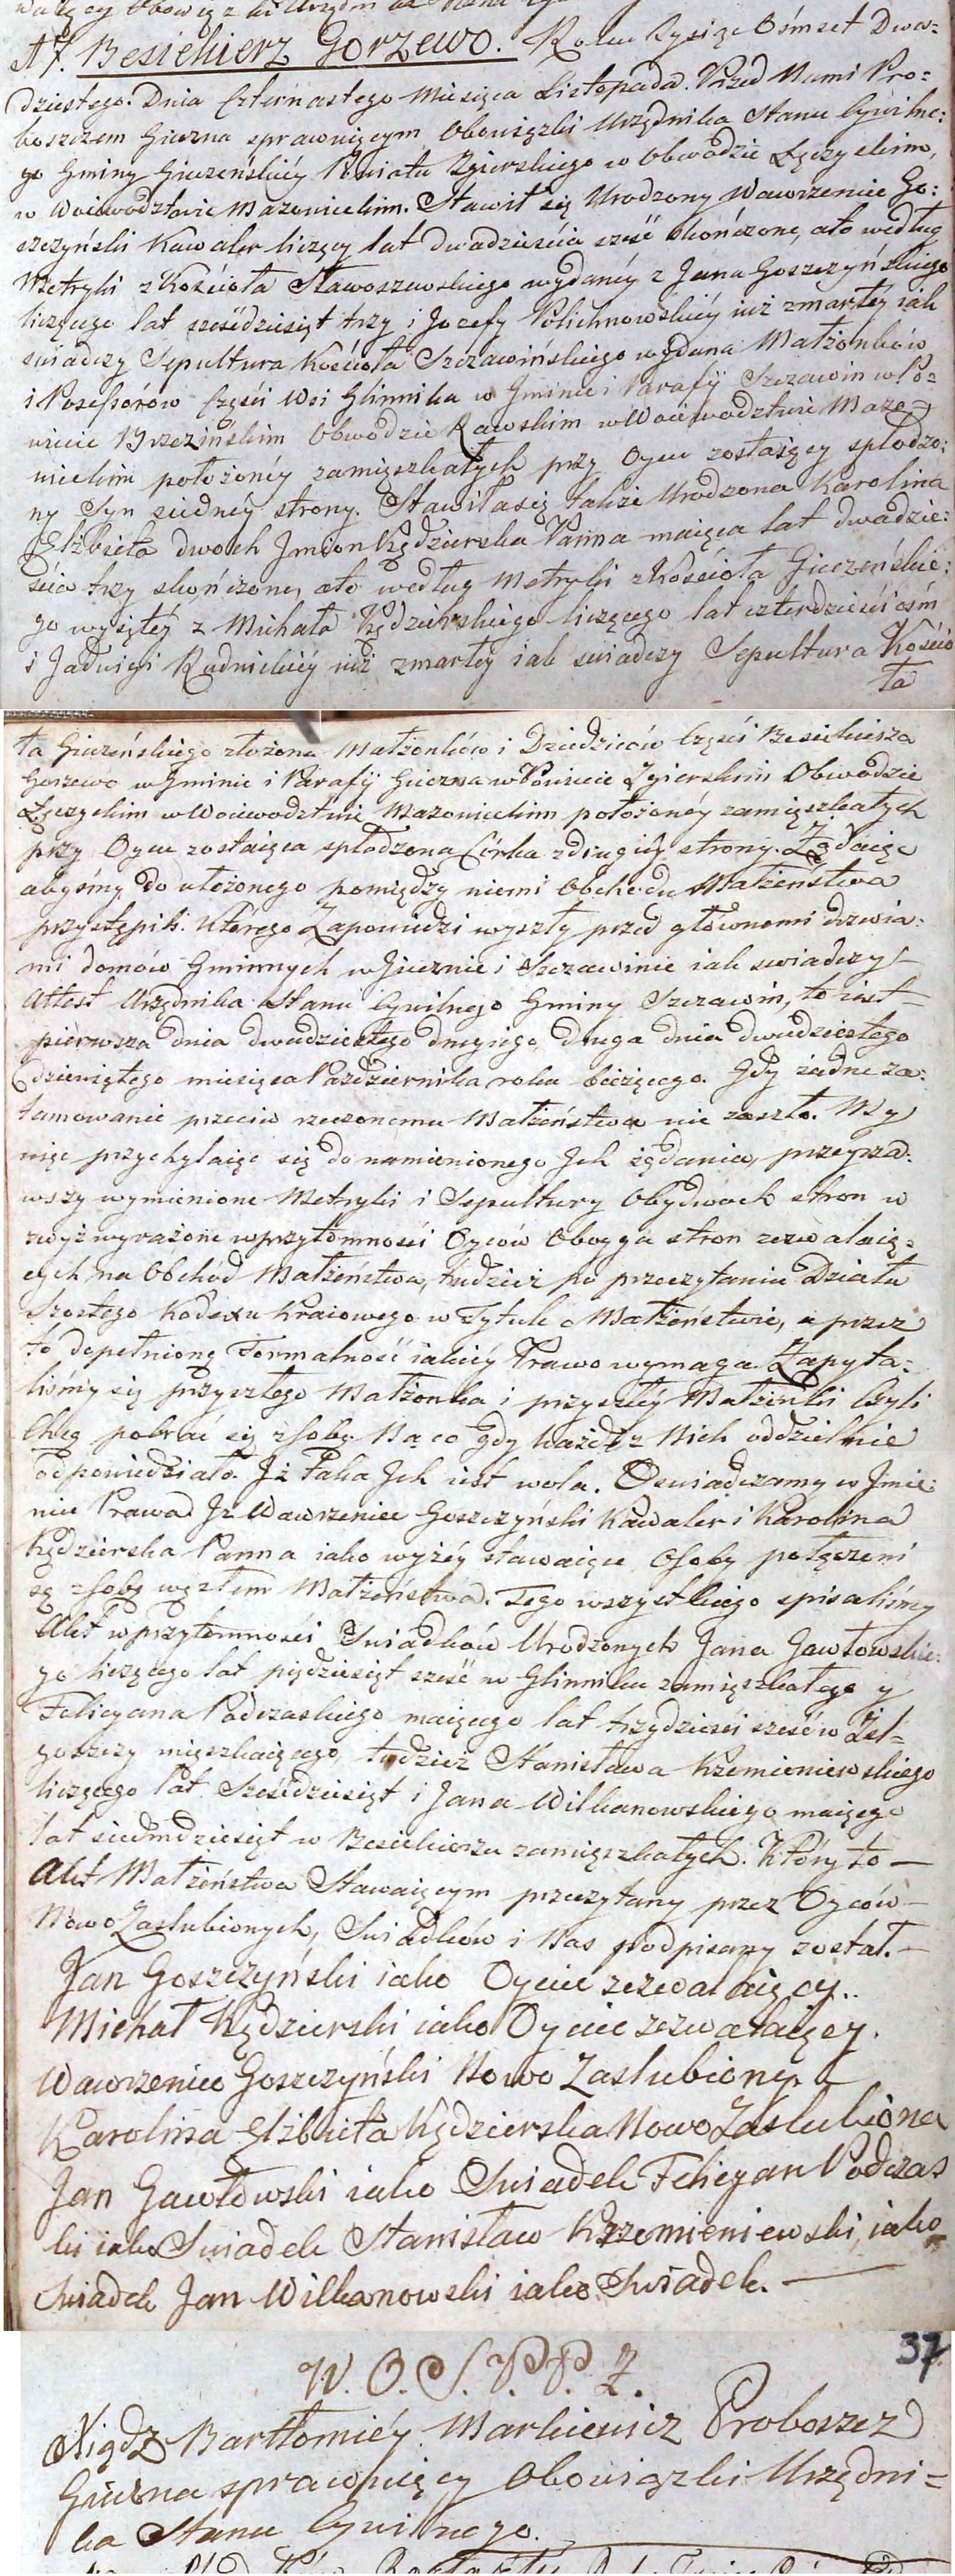 A 7. Besiekierz Gorzewo. Roku Tysiąc Ośmset Dwu=
dziestego. Dnia Czternastego Miesiąca Listopada. Przed Nami Pro=
boszczem Gieczna sprawuiącym Obowiązki Urzędnika Stanu Cywilne:
go Gminy Gieczeńskiéy Powiatu Zgierskiego w Obwodzie Łęczyckim,
w Woiewodztwie Mazowieckim. Stawił się Urodzony Wawrzeniec Go:
szczyński Kawaler liczący lat dwadzieścia sześć skończone, ato według
Metryki z Kościoła Sławoszewskiego wydanéy z Jana Goszczyńskiego
liczącego lat sześćdziesiąt trzy i Jozefy Polichnowskiéy iuż zmarłéy iak
świadczy Sepultura Kościoła Szczawińskiego wydana Małżonków
i Posessorów Części Wsi Glinnika w Gminie i Parafij Szczawin w Po=
wiecie Brzezińskim Obwodzie Rawskim w Woiewodztwie Mazo=
wieckim położonéy zamięszkałych przy Oycu zostaiący spłodzo:
ny Syn zиednéy strony. Stawiła się także Urodzona Karolina
Elżbieta dwoch Jmion Kędzierska Panna maiąca lat dwadzie:
ścia trzy skończone, ato według Metryki z Kościoła Gieczeńskie:
go wyiętéy z Michała Kędzierskiego liczącego lat czterdzieści ośm
i Jadwigi Rudnickiéy iuż zmarłéy iak swiadczy Sepultura Kościo
ła
ła Gieczeńskiego złożona Małżonków i Dziedziców Części Besiekierza
Gorzewo w Gminie i Parafij Gieczna w Powiecie Zgierskim Obwodzie
Łęczyckim w Woiewodztwie Mazowieckim położonéy zamięszkałych
przy Oycu zostaiąca spłodzona Córka zdrugiéy strony. Żądaiąc
abyśmy do ułożonego pomiędzy niemi Obchodu Małżeństwa
przystąpili. którego Zapowiedzi wyszły przed głównemi drzwia:
mi domów Gminnych w Giecznie i Szczawinie iak swiadczy
Attest Urzędnika Stanu Cywilnego Gminy Szczawin, to iest
pierwsza dnia dwudziestego drugiego, druga dnia dwudziestego
dziewiątego miesiąca Pazdziernika roku bieżącego. Gdy żadne za:
tamowanie przeciw rzeczonemu Małżeństwu nie zaszło. My
więc przychylaiąc się do namienionego Jch żądania, przeyrza:
wszy wymienione Metryki i Sepultury Obydwoch stron w
zwyż wyrażone w przytomności Oyców Oboyga stron zezwalaią:
cych na Obchód Małżeństwa, tudzież po przeczytaniu Działu
szostego Kodexu Kraiowego w Tytule o Małżeństwie, a przez
to dopełnioną Formalność iakiéy Prawo wymaga Zapyta:
liśmy się przyszłego Małżonka i przyszłéy Małżonki Czyli
Chcą pobrać się zsobą. Na co Gdy każde z Nich oddzielnie
odpowiedziało. Jż Taka Jch iest wola. Oswiadczamy w Jmie:
niu Prawa Jż Wawrzeniec Goszczyński Kawaler i Karolina
Kędzierska Panna iako wyżéy stawaiące Osoby połączeni
są zsobą węzłem Małżeństwa. Tego wszystkiego spisaliśmy
Akt w przytomności Swiadków Urodzonych Jana Gawłowskie:
go liczącego lat pięćdziesiąt sześć w Glinniku zamięszkałego y
Felicyana Podczaskiego maiącego lat trzydzieści sześć w Żel=
goszczy mięszkaiącego, tudzież Stanisława Krzemieniewskiego
liczącego lat Sześćdziesiąt i Jana Wilkanowskiego maiącego
lat siedmdziesiąt w Besiekierzu zamięszkałych. Który to —
Akt Małżeństwa Stawaiącym przeczytany przez Oyców —
Nowo Zaslubionych, Swiadków i Nas podpisany został. —
Jan Goszczyński iako Oyciec zezwalaiący..
Michał Kędzierski iako Oyciec zezwalaiący.
Wawrzeniec Goszczyński Nowo Zaslubiony.
Karolina Elżbieta Kędzierska Nowo Zaslubiona
Jan Gawłowski iako Swiadek Felicyan Podczas
ki iako Swiadek Stanisław Krzemieniewski, iako
Swiadek Jan Wilkanowski iako Swiadek. —
37.
W. O. S. P. P. Z.
Xiądz Bartłomiéy Markiewicz Proboszcz
Gieczna sprawuiący Obowiązki Urzędni=
ka Stanu Cywilnego.